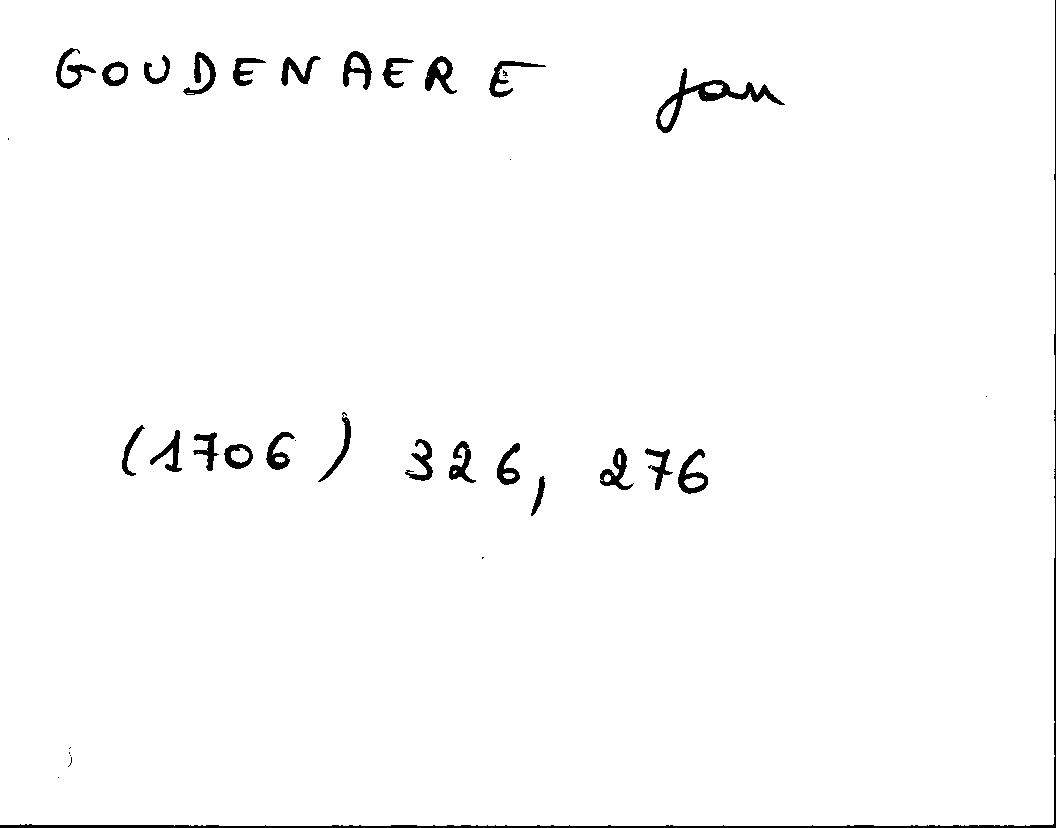 GOUDENAERE Jan
(1706) 326, 276